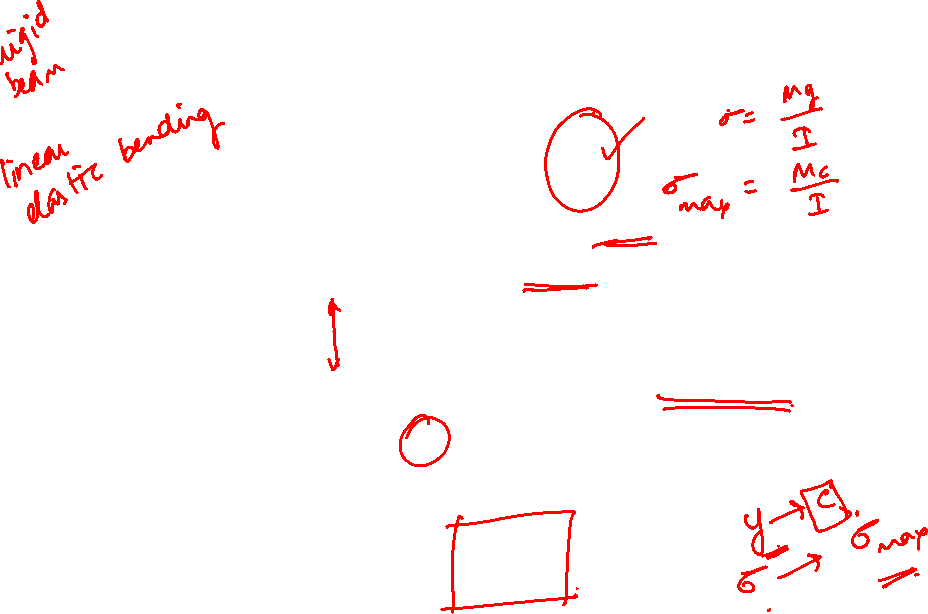 rigid
beam
linear
elastic bending
σ = My/I
σmax = Mc/I
y → c
σ → σmax